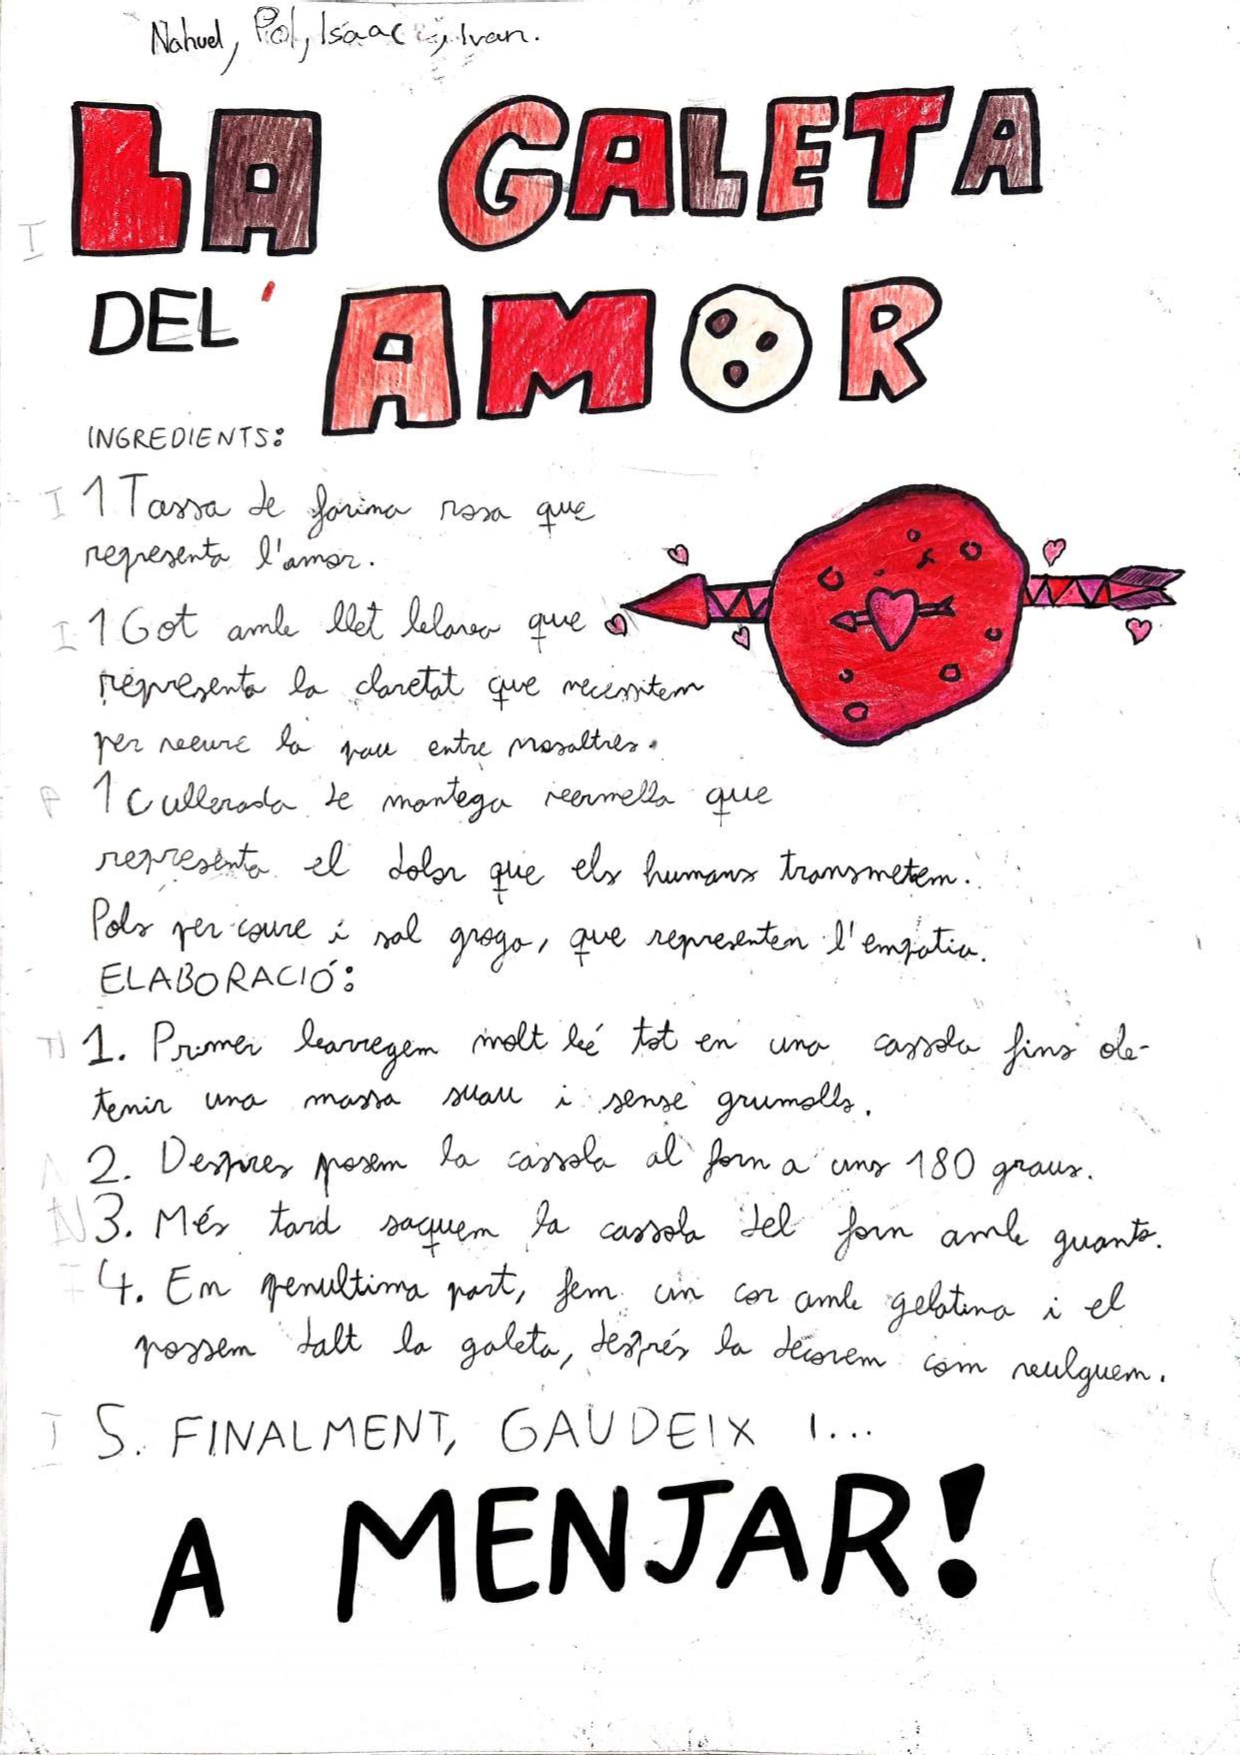 Nahuel, Pol, Isaac i, Ivan.
LA GALETA
DEL' AMOR
INGREDIENTS:
1 Tassa de farina rosa que
representa l'amor.
1 Got amb llet blava que
representa la claretat que necessitem
per veure la pau entre nosaltres.
1 cullerada de mantega vermella que
representa el dolor que els humans transmetem.
Pols per coure i sal groga, que representen l'empatia.
ELABORACIÓ:
1. Primer barregem molt bé tot en una cassola fins ob-
tenir una massa suau i sense grumolls.
2. Despres posem la cassola al forn a uns 180 graus.
3. Més tard saquem la cassola del forn amb guants.
4. Em penultima part, fem un cor amb gelatina i el
possem dalt la galeta, després la decorem com vulguem.
5. FINALMENT, GAUDEIX I...
A MENJAR!